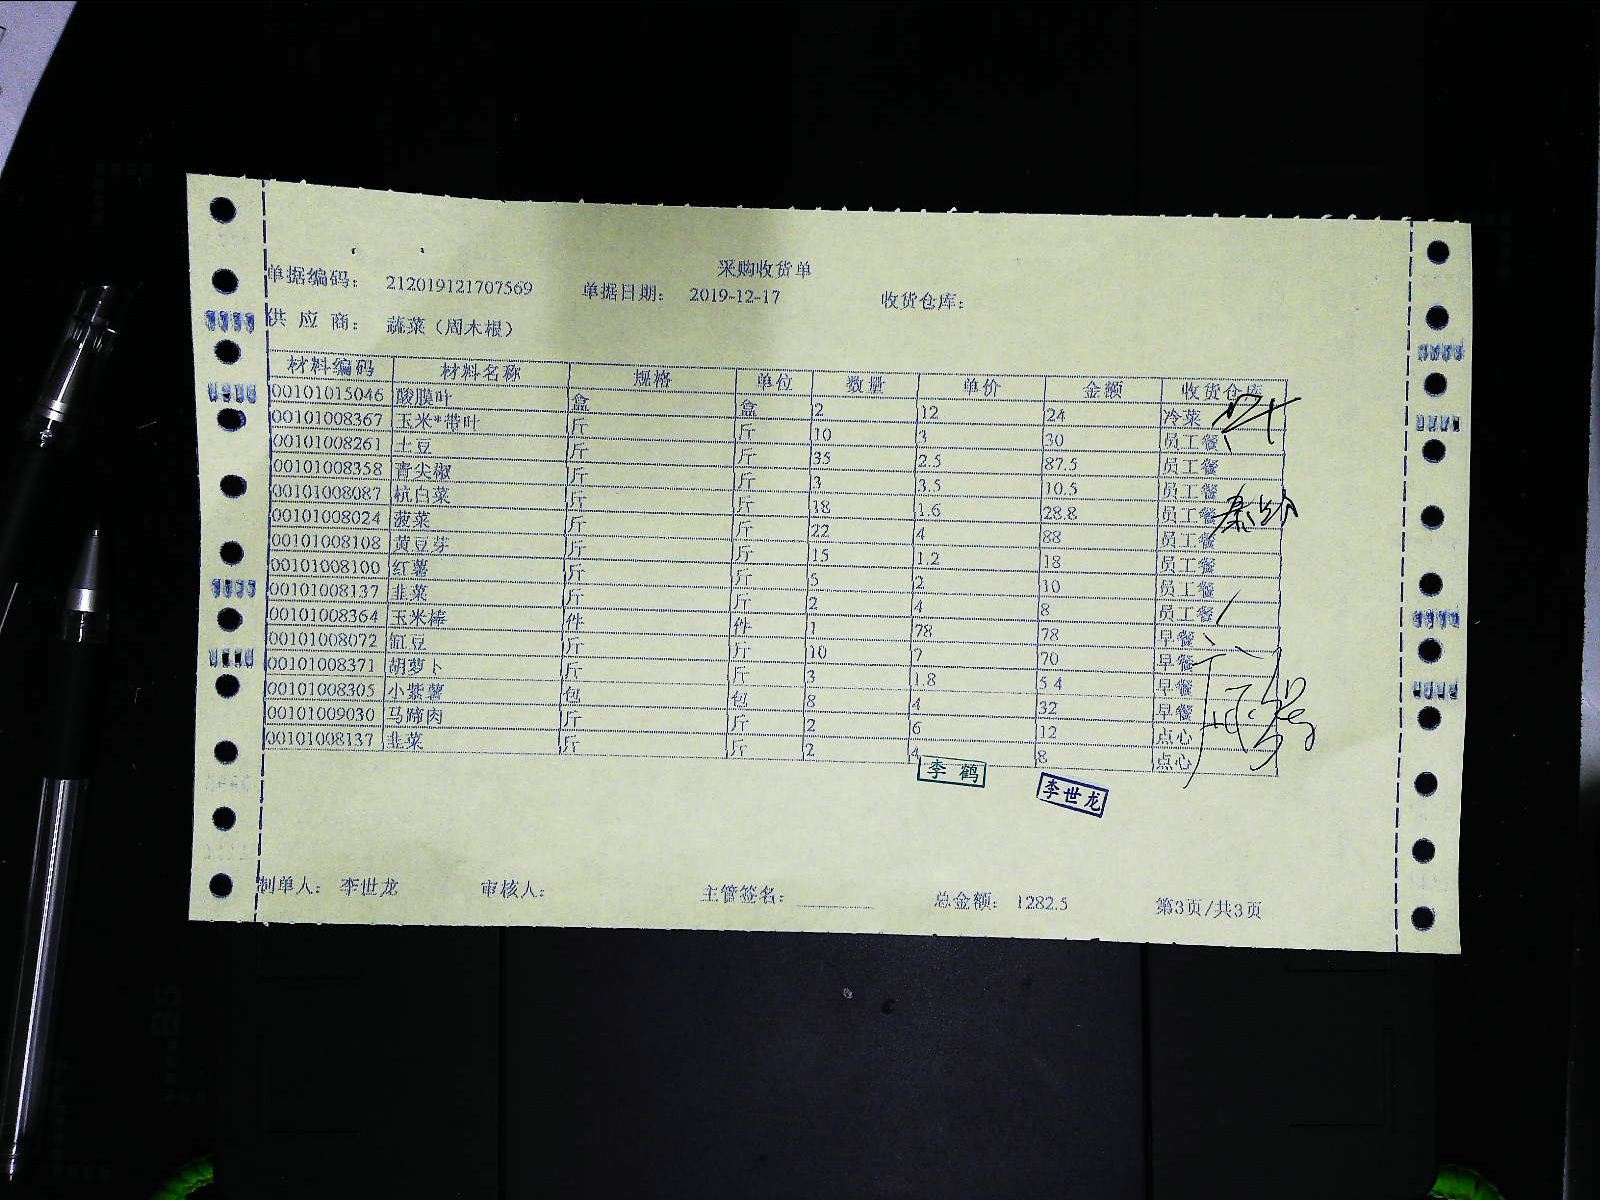 采购收货单
单据编码： 212019121707569 单据日期： 2019-12-17 收货仓库：
供 应 商： 蔬菜（周木根）
材料编码 材料名称 规格 单位 数量 单价 金额 收货仓库
00101015046 酸膜叶 盒 盒 2 12 24 冷菜
00101008367 玉米*带叶 斤 斤 10 3 30 员工餐
00101008261 土豆 斤 斤 35 2.5 87.5 员工餐
00101008358 青尖椒 斤 斤 3 3.5 10.5 员工餐
00101008087 杭白菜 斤 斤 18 1.6 28.8 员工餐
00101008024 菠菜 斤 斤 22 4 88 员工餐
00101008108 黄豆芽 斤 斤 15 1.2 18 员工餐
00101008100 红薯 斤 斤 5 2 10 员工餐
00101008137 韭菜 斤 斤 2 4 8 员工餐
00101008364 玉米棒 件 件 1 78 78 早餐
00101008072 缸豆 斤 斤 10 7 70 早餐
00101008371 胡萝卜 斤 斤 3 1.8 5.4 早餐
00101008305 小紫薯 包 包 8 4 32 早餐
00101009030 马蹄肉 斤 斤 2 6 12 点心
00101008137 韭菜 斤 斤 2 4 8 点心
李鹤 李世龙
制单人： 李世龙 审核人： 主管签名： 总金额： 1282.5 第3页/共3页